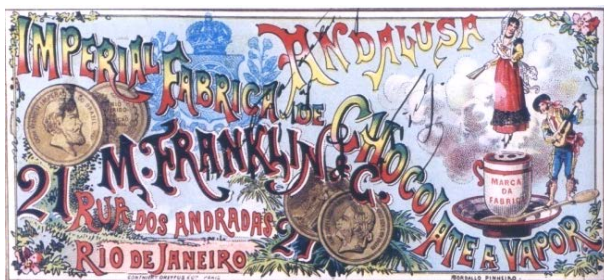 IMPERIAL FABRICA DE CHOCOLATE A VAPOR
ANDALUSA
M. FRANKLIN & C.
21 RUA DOS ANDRADAS 21
RIO DE JANEIRO
MARCA
DA
FABRICA
BORDALLO PINHEIRO.